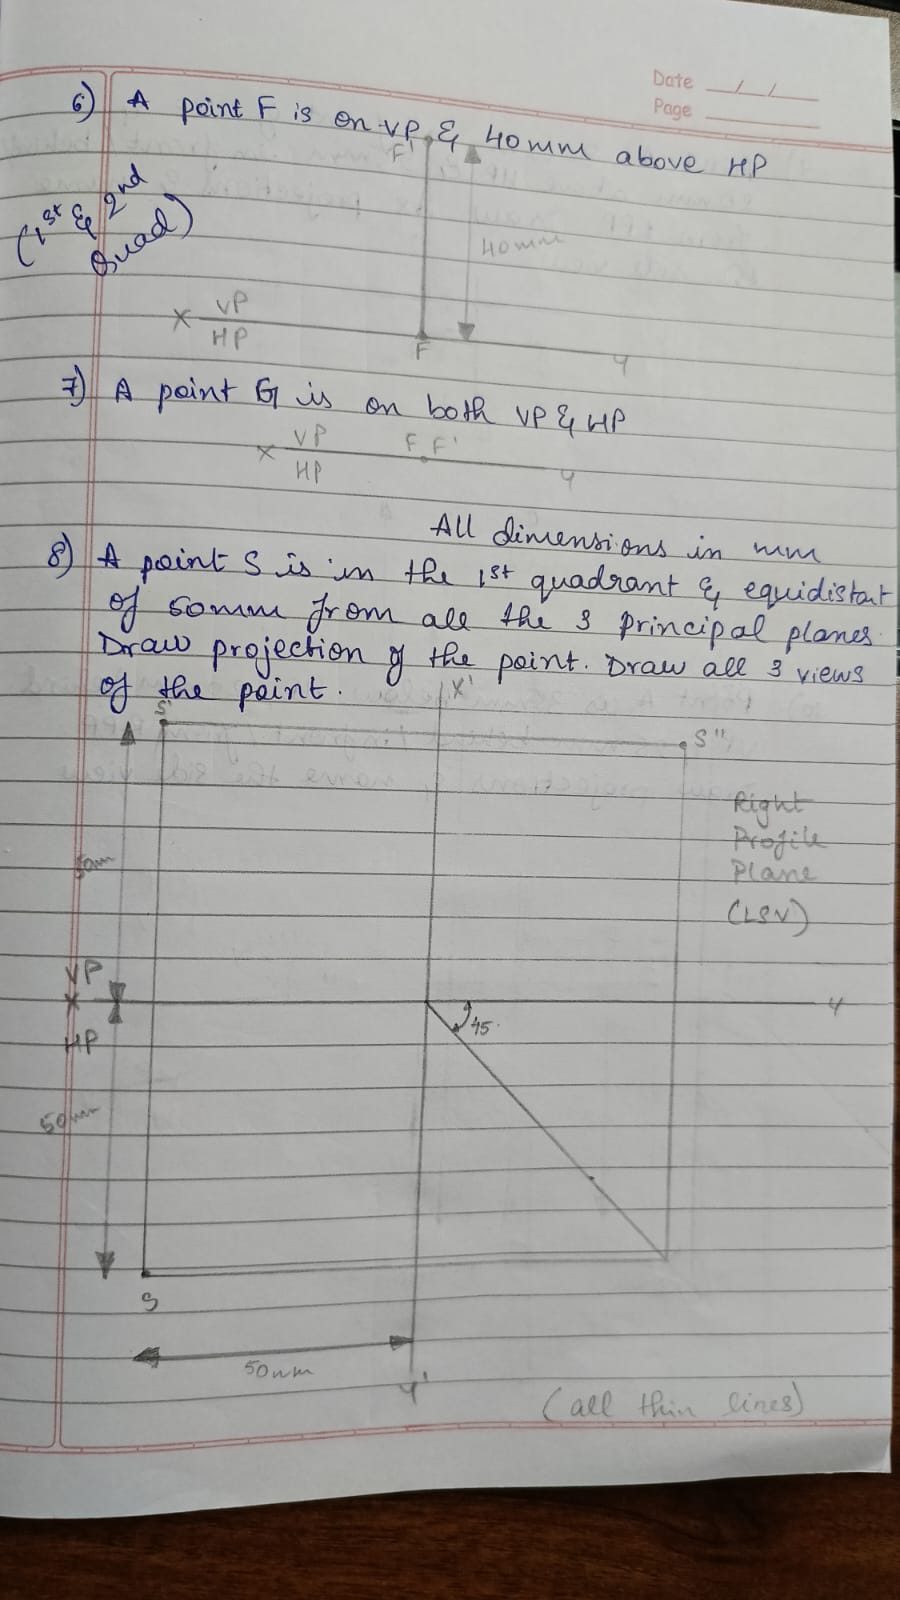 Date / /
Page
6) A point F is on VP & 40mm above HP
(1st & 2nd Quad)
F'
40mm
X VP
HP
F
Y
7) A point G is on both VP & HP
X VP
HP
F F'
Y
All dimensions in mm
8) A point S is in the 1st quadrant & equidistat
of 50mm from all the 3 principal planes.
Draw projection of the point. Draw all 3 views
of the point.
X'
S'
S"
Right
Profile
Plane
(LSV)
VP
X
HP
Y
45
50mm
S
50mm
Y'
(all thin lines)